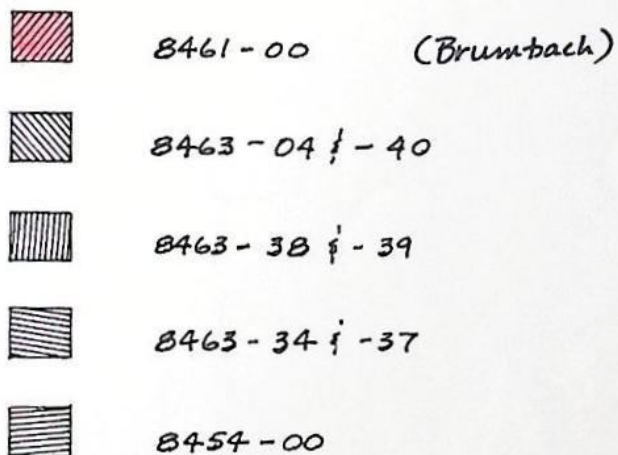 8461-00 (Brumbach)
8463-04 & -40
8463-38 & -39
8463-34 & -37
8454-00